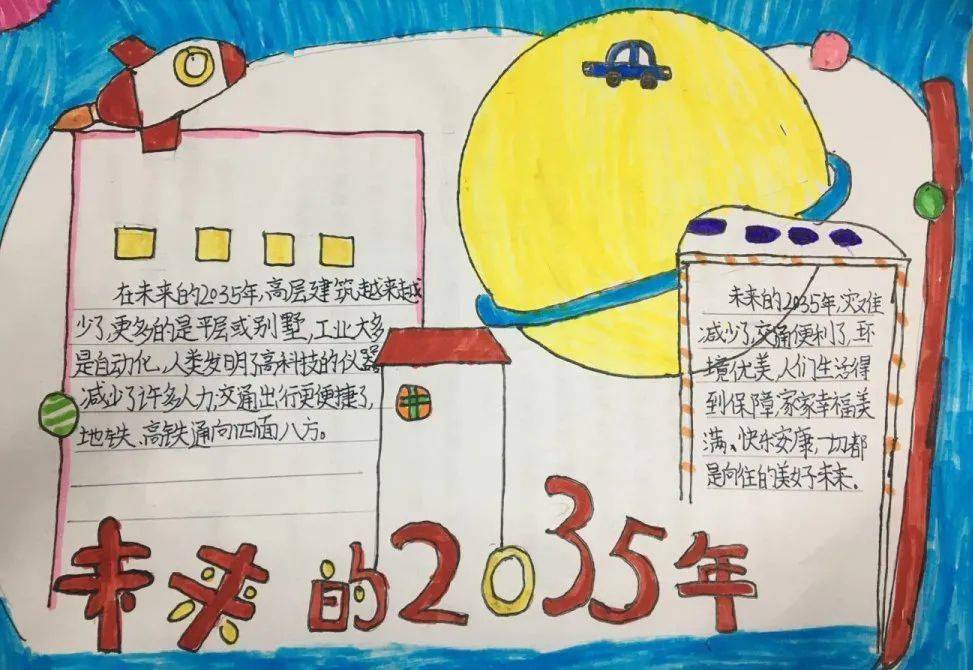 在未来的2035年,高层建筑越来越
少了,更多的是平层或别墅,工业大多
是自动化,人类发明了高科技的仪器
减少了许多人力,交通出行更便捷了,
地铁、高铁通向四面八方。
未来的2035年,灾难
减少了,交通便利了,环
境优美,人们生活得
到保障,家家幸福美
满、快乐安康,一切都
是向往的美好未来。
未来的2035年